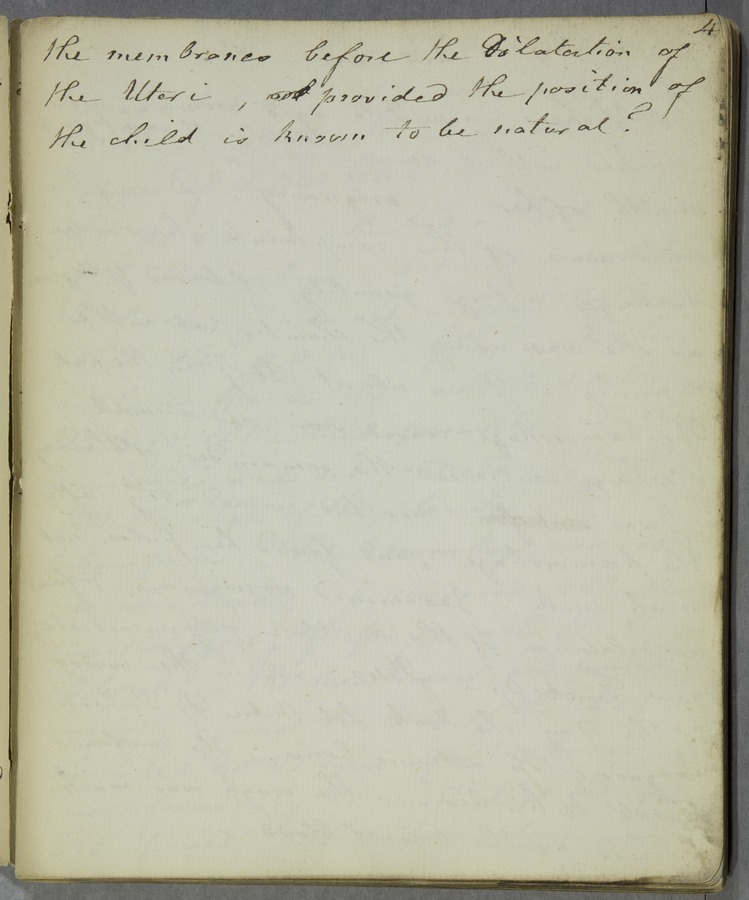 4
the membranes before the Dilatation of
the Uteri, provided the position of
the child is known to be natural?